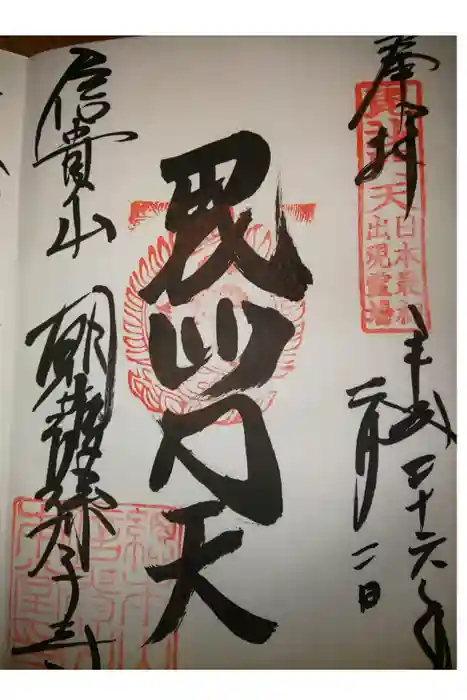 奉拝
毘沙門天
日本最初
出現霊場
平成二十六年
二月二日
毘沙門天
信貴山
朝護孫子寺